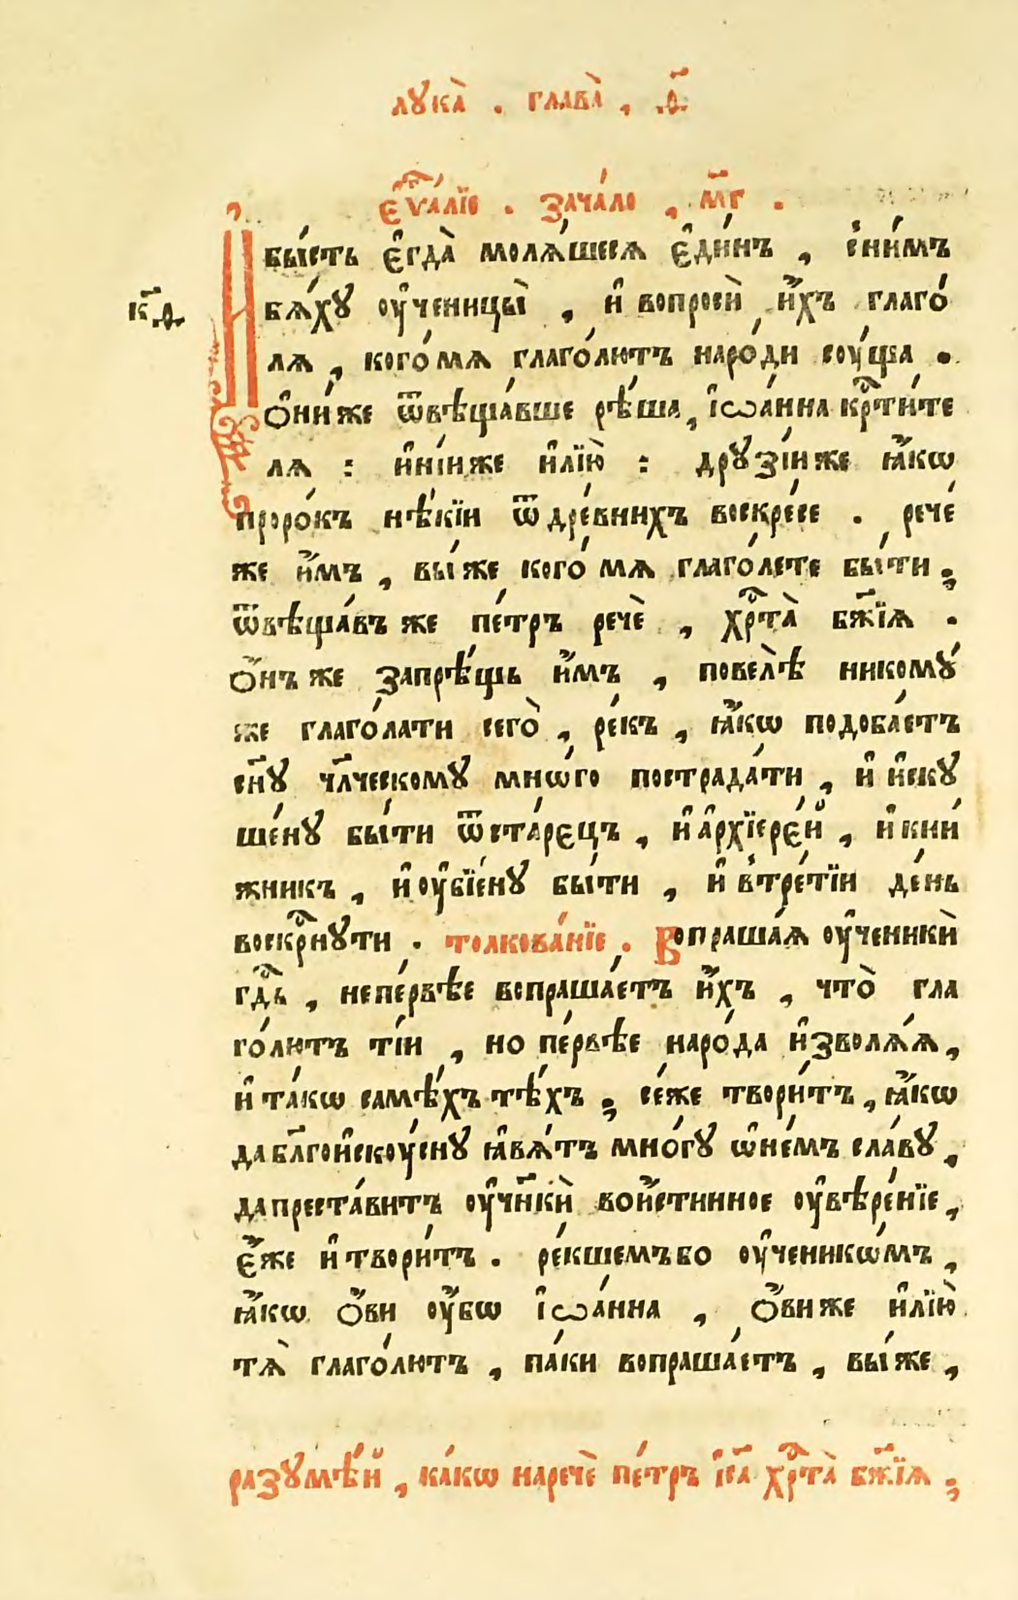 лꙋка̀ . глава̀ , ѳ҃
є҆ѵⷢ҇а́лїе . зача́ло , м҃г .
И҆
бы́сть є҆гда̀ молѧ́шесѧ є҆ди́нъ , сни́мъ
к҃ѳ
бѧ́хꙋ оу҆ченицы̀ , и҆ вопросѝ и҆̀хъ глаго́
лѧ , кого́ мѧ глаго́лютъ наро́ди соу́ща .
Ѻ҆ни́же ѿвѣща́вше рѣ́ша , і҆ѡа́нна крⷭ҇ти́те
лѧ : и҆ні́и же и҆лїю̀ : дрꙋзі́и же ꙗ҆́кѡ
проро́къ нѣ́кїи ѿ дре́внихъ воскре́се . рече́
же и҆̀мъ , вы́ же кого́ мѧ глаго́лете бы́ти ;
ѿвѣща́въ же пе́тръ речѐ , хрⷭ҇та̀ бж҃їѧ .
Ѻ҆́нъ же запрѣ́щь и҆̀мъ , повелѣ̀ никомꙋ́
же глаго́лати сего̀ , ре́къ , ꙗ҆́кѡ подоба́етъ
сн҃ꙋ чл҃ческомꙋ мнѡ́го пострада́ти , и҆ и҆скꙋ
ше́нꙋ бы́ти ѿ ста́рєцъ , и҆ а҆рхїере́й , и҆ кни́
жникъ , и҆ оу҆бїе́нꙋ бы́ти , и҆ в тре́тїи де́нь
воскрⷭ҇нꙋти . толкова́нїе . Вопраша́ѧ оу҆ченикѝ
гдⷭ҇ь , непе́рвѣе вопраша́етъ и҆̀хъ , что̀ гла
го́лютъ ті́и , но пе́рвѣе наро́да и҆зволѧ́ѧ ,
и҆ та́кѡ самѣ́хъ тѣ́хъ ; се́же твори́тъ , ꙗ҆́кѡ
да бл҃гоискоу́снꙋ ꙗ҆вѧ́тъ мно́гꙋ ѡ҆не́мъ сла́вꙋ ,
да преста́витъ оу҆чн҃кѝ вои́стинное оу҆вѣре́нїе ,
є҆́же и҆ твори́тъ . ре́кшемъ бо оу҆ченикѡ́мъ ,
ꙗ҆́кѡ ѻ҆́ви оу҆́бѡ і҆ѡа́нна , ѻ҆́ви же и҆лїю̀
тѧ̀ глаго́лютъ , па́ки вопраша́етъ , вы́ же ,
разꙋмѣ́й , ка́кѡ наречѐ пе́тръ і҆с҃а хрⷭ҇та̀ бж҃їѧ ;